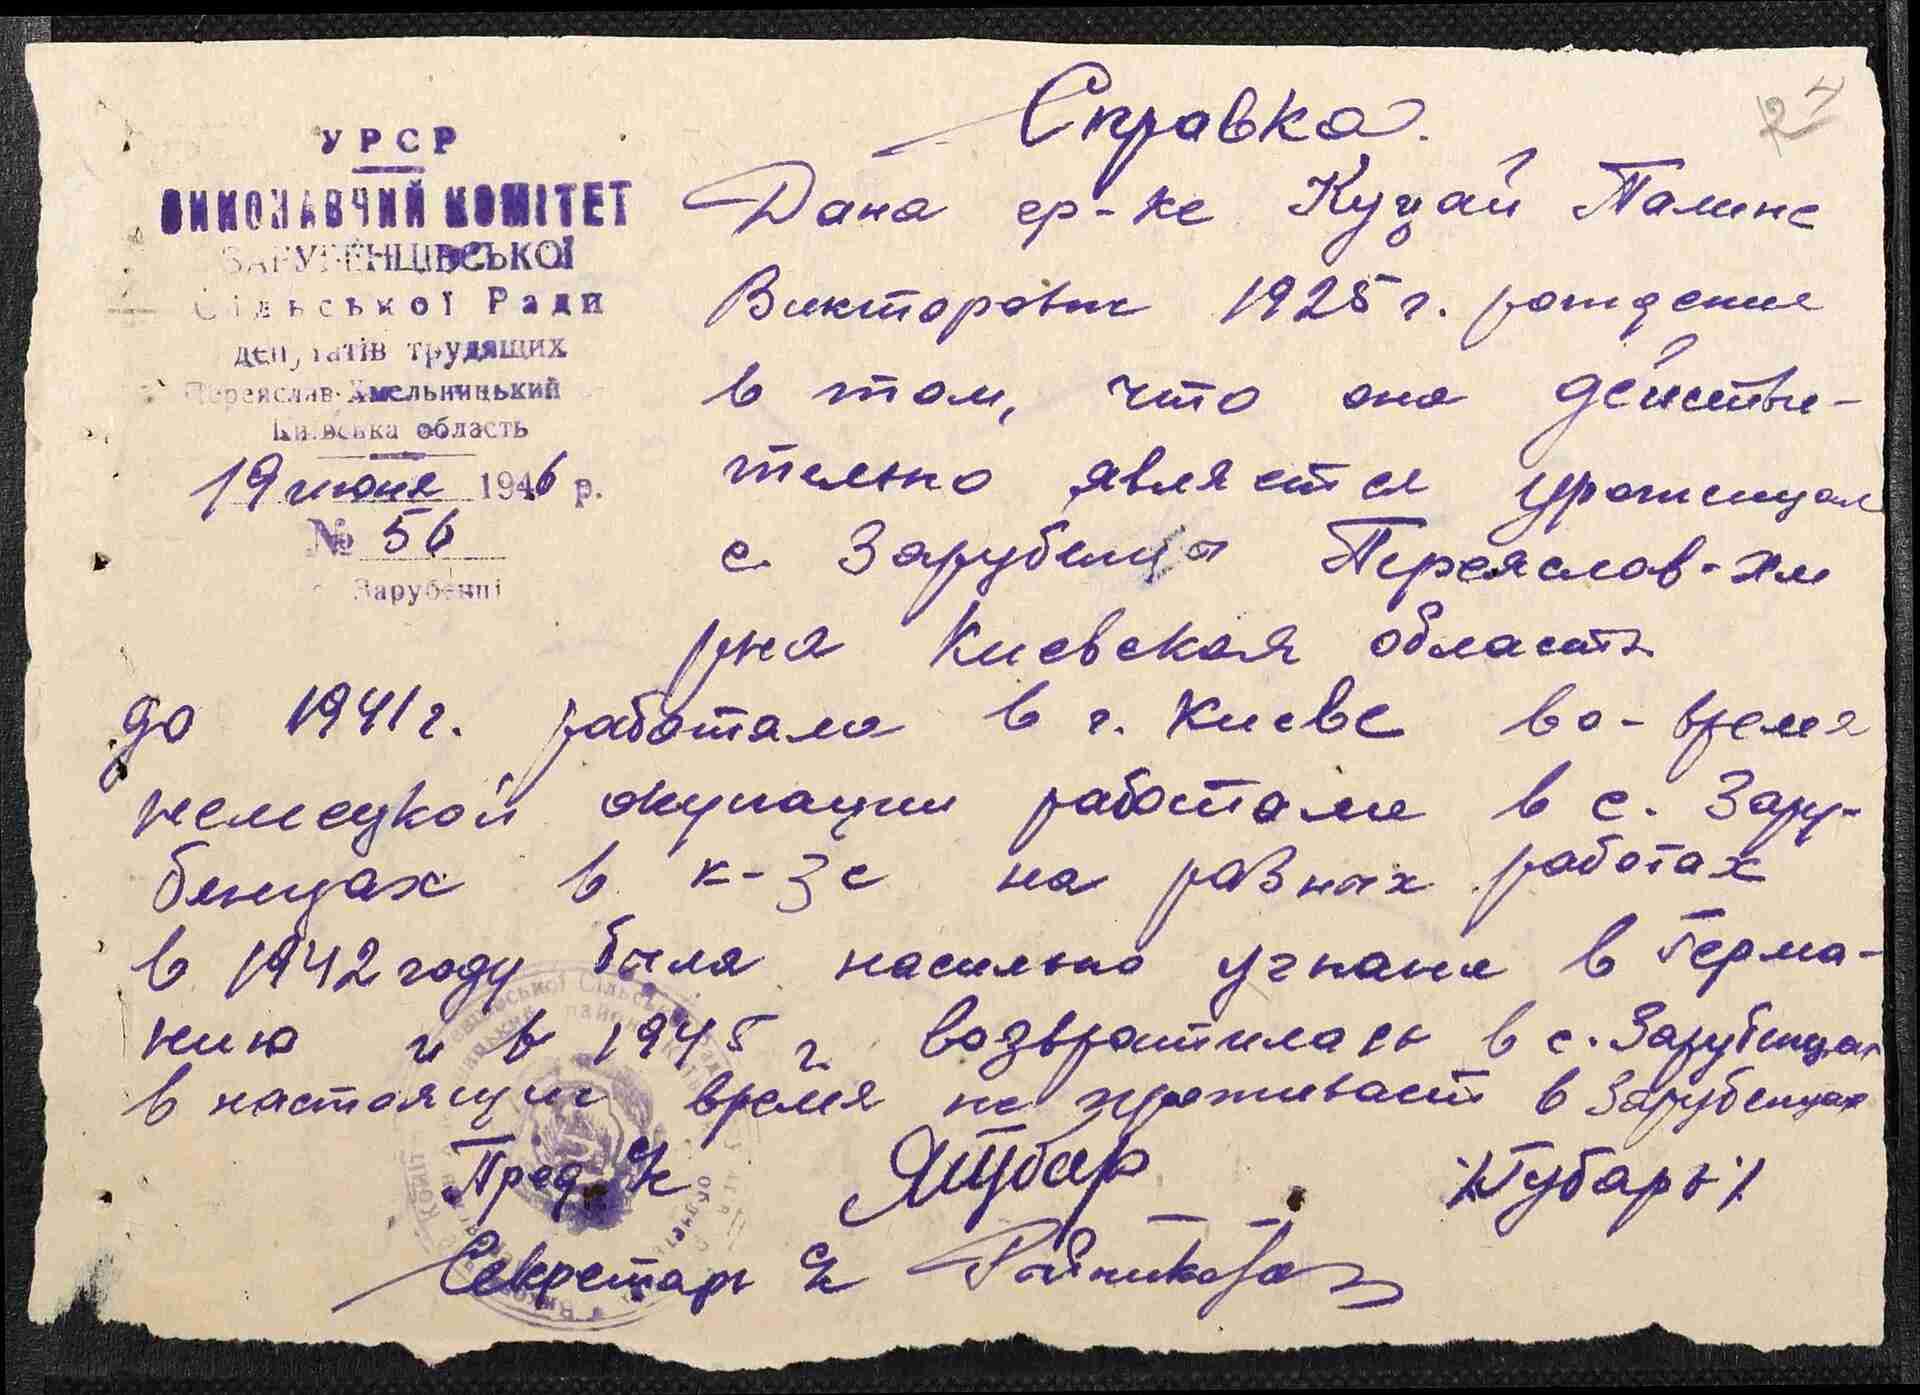 27
УРСР
ВИКОНАВЧИЙ КОМІТЕТ
ЗАРУБЕНЦІВСЬКОЇ
Сільської Ради
депутатів трудящих
Переяслав-Хмельницький
Київська область
19 июня 1946 р.
№ 56
с. Зарубенці
Справка.
Дана гр-ке Куцай Палине
Викторовне 1925 г. рождения
в том, что она действи-
тельно является уроженцам
с. Зарубенца Переяслав-Хм
р-на Киевская область
до 1941 г. работала в г. Киеве во-время
немецкой окупации работала в с. Зару-
бенцах в к-зе на разных работах
в 1942 году была насильно угнана в Герма-
нию и в 1945 г. возвратилась в с. Зарубенцах
в настоящии время не проживает в Зарубенцах
Пред. с/с /Тубарь/
Секретарь с/с